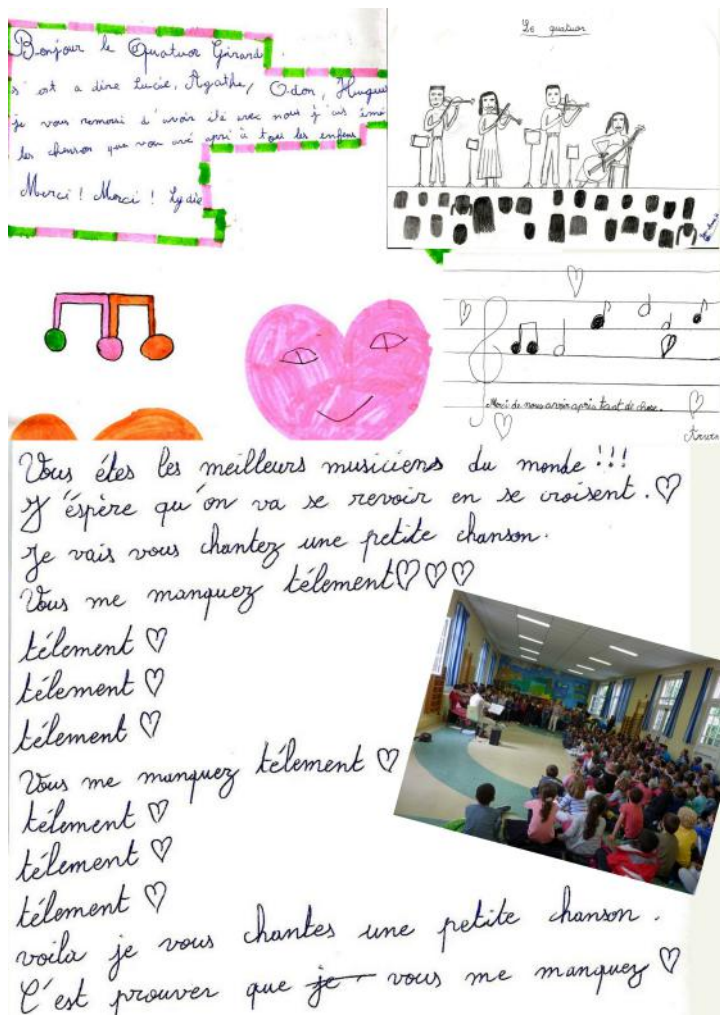 Bonjour le Quatuor Girard
s'est a dire Lucie, Agathe, Odon, Hugues
je vous remersi d'avoir été avec nous j'ais émé
les chanson que vou avé apri à tous les enfens
Merci ! Merci ! Lydie
Le quatuor
Merci de nous avoir apris tant de chose.
Vous étes les meilleurs musiciens du monde !!!
J'éspère qu'on va se revoir en se croisent. ♡
Je vais vous chantez une petite chanson.
Vous me manquez télement ♡♡♡
télement ♡
télement ♡
télement ♡
Vous me manquez télement ♡
télement ♡
télement ♡
télement ♡
voila je vous chantes une petite chanson.
C'est prouver que je vous me manquez ♡